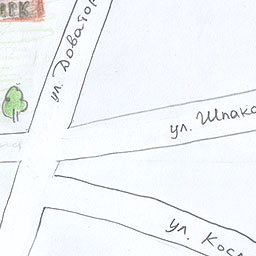 ул. Доватор
ул. Шпако
ул. Косм